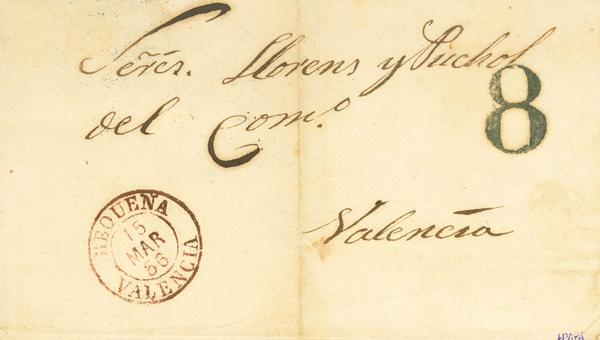 Señrs. Llorens y Puchol
del Com.º
8
Valencia
REQUENA
15
MAR
56
VALENCIA